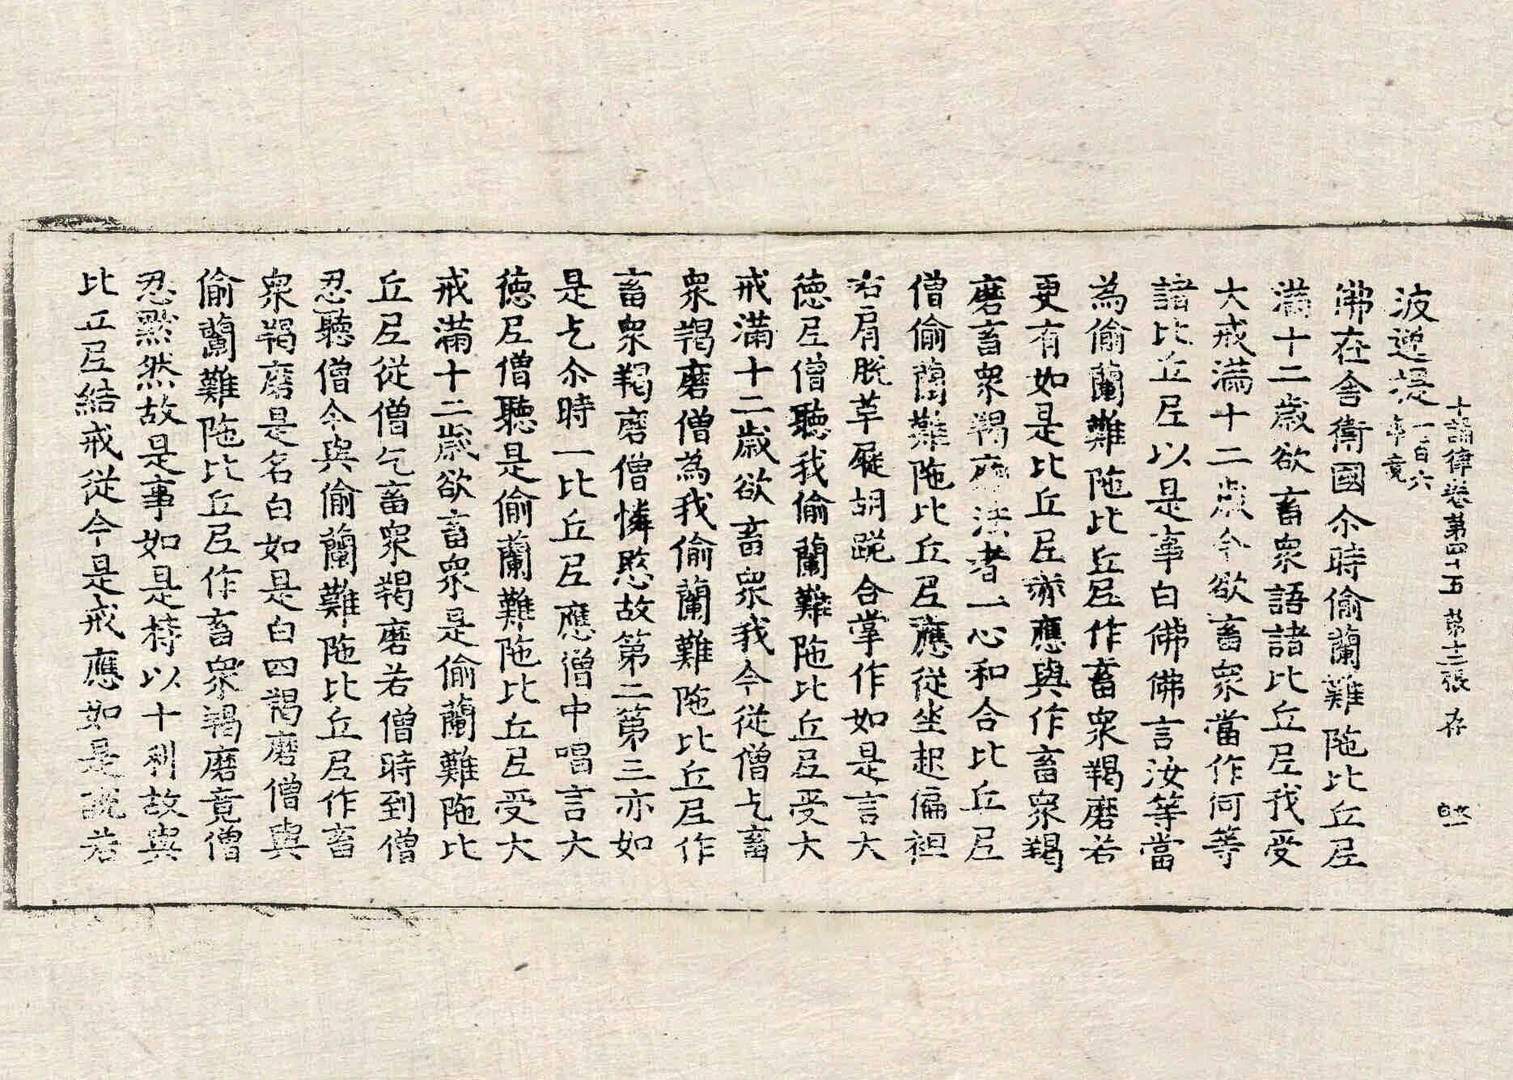 十誦律卷第四十五 第十三張 存
波逸提一百六
事竟
佛在舍衛國尒時偷蘭難陁比丘尼
滿十二歲欲畜衆語諸比丘尼我受
大戒滿十二歲今欲畜衆當作何等
諸比丘尼以是事白佛佛言汝等當
為偷蘭難陁比丘尼作畜衆羯磨若
更有如是比丘尼亦應與作畜衆羯
磨畜衆羯磨法者一心和合比丘尼
僧偷蘭難陁比丘尼應從坐起偏袒
右肩脫革屣胡跪合掌作如是言大
德尼僧聽我偷蘭難陁比丘尼受大
戒滿十二歲欲畜衆我今從僧乞畜
衆羯磨僧為我偷蘭難陁比丘尼作
畜衆羯磨僧憐愍故第二第三亦如
是乞尒時一比丘尼應僧中唱言大
德尼僧聽是偷蘭難陁比丘尼受大
戒滿十二歲欲畜衆是偷蘭難陁比
丘尼從僧乞畜衆羯磨若僧時到僧
忍聽僧今與偷蘭難陁比丘尼作畜
衆羯磨是名白如是白四羯磨僧與
偷蘭難陁比丘尼作畜衆羯磨竟僧
忍黙然故是事如是持以十利故與
比丘尼結戒從今是戒應如是說若